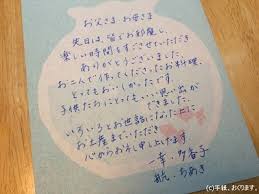 お父さま お母さま
先日は、皆でお邪魔し
楽しい時間をすごさせていただき
ありがとうございました。
お二人で作ってくださったお料理、
とってもおいしかったです。
子供たちにとってもいい思い出が
できました。
いろいろとお世話になった上に
お土産までいただき
心からお礼申し上げます
一幸、多香子
航、ちあき
(C)手紙、おくります。